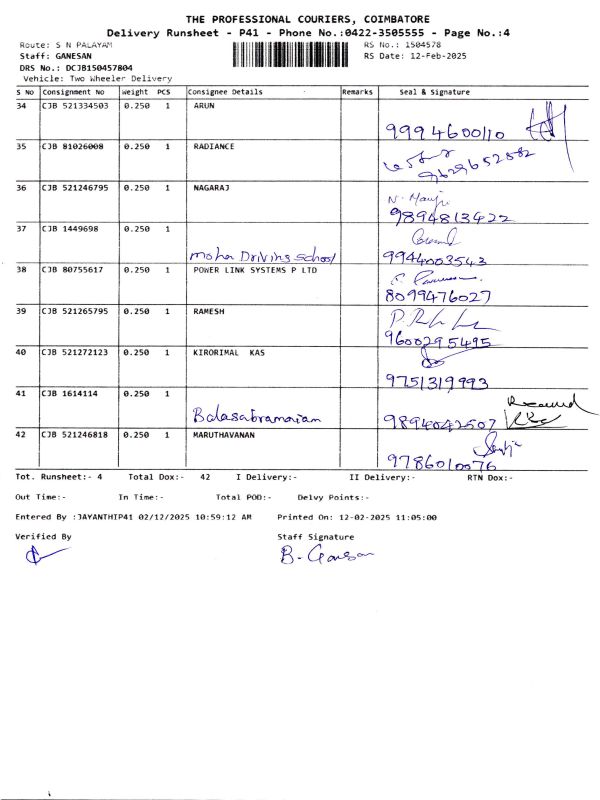 THE PROFESSIONAL COURIERS, COIMBATORE
Delivery Runsheet - P41 - Phone No.:0422-3505555 - Page No.:4
Route: S N PALAYAM RS No.: 1504578
Staff: GANESAN RS Date: 12-Feb-2025
DRS No.: DCJB150457804
Vehicle: Two Wheeler Delivery
S No Consignment No Weight PCS Consignee Details Remarks Seal & Signature
34 CJB 521334503 0.250 1 ARUN
9994600110
35 CJB 81026008 0.250 1 RADIANCE
9629652582
36 CJB 521246795 0.250 1 NAGARAJ
9894813422
37 CJB 1449698 0.250 1
Moha Driving School 9944003543
38 CJB 80755617 0.250 1 POWER LINK SYSTEMS P LTD
8099476027
39 CJB 521265795 0.250 1 RAMESH
9600295495
40 CJB 521272123 0.250 1 KIRORIMAL KAS
9751319993
41 CJB 1614114 0.250 1 Received
Balasabramaiam 9894042507
42 CJB 521246818 0.250 1 MARUTHAVANAN
9786010076
Tot. Runsheet:- 4 Total Dox:- 42 I Delivery:- II Delivery:- RTN Dox:-
Out Time:- In Time:- Total POD:- Delvy Points:-
Entered By :JAYANTHIP41 02/12/2025 10:59:12 AM Printed On: 12-02-2025 11:05:00
Verified By Staff Signature
B. Ganesan